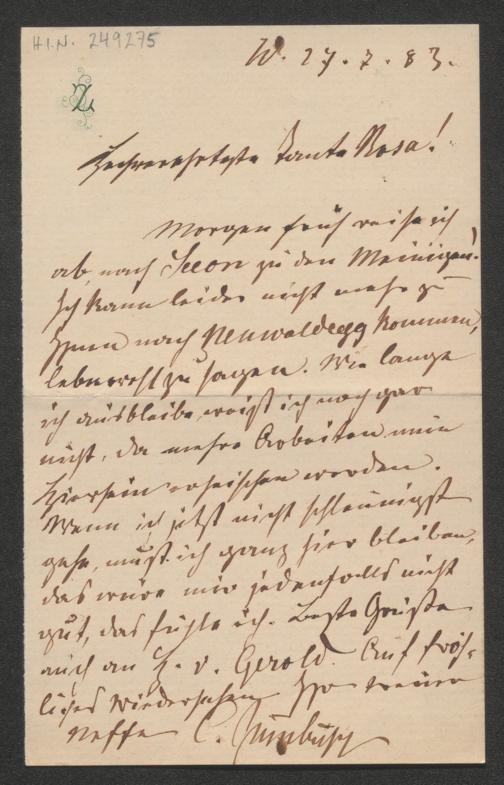 H.I.N. 249275
W. 27.7.83.
Z
Hochverehrteste Tante Rosa!
Morgen früh reise ich
ab nach Seeon zu den Meinigen!
Ich kann leider nicht mehr zu
Ihnen nach Neuwaldegg kommen,
lebewohl zu sagen. Wie lange
ich ausbleibe, weiß ich noch gar
nicht, da mehre Arbeiten mein
Hiersein erheischen werden.
Wenn ich jetzt nicht schleunigst
gehe, muß ich ganz hier bleiben,
das wäre mir jedenfalls nicht
gut, das fühle ich. Beste Grüße
auch an H. v. Gerold. Auf fröh-
liches Wiedersehen Ihr treuer
Neffe C. Zumbusch